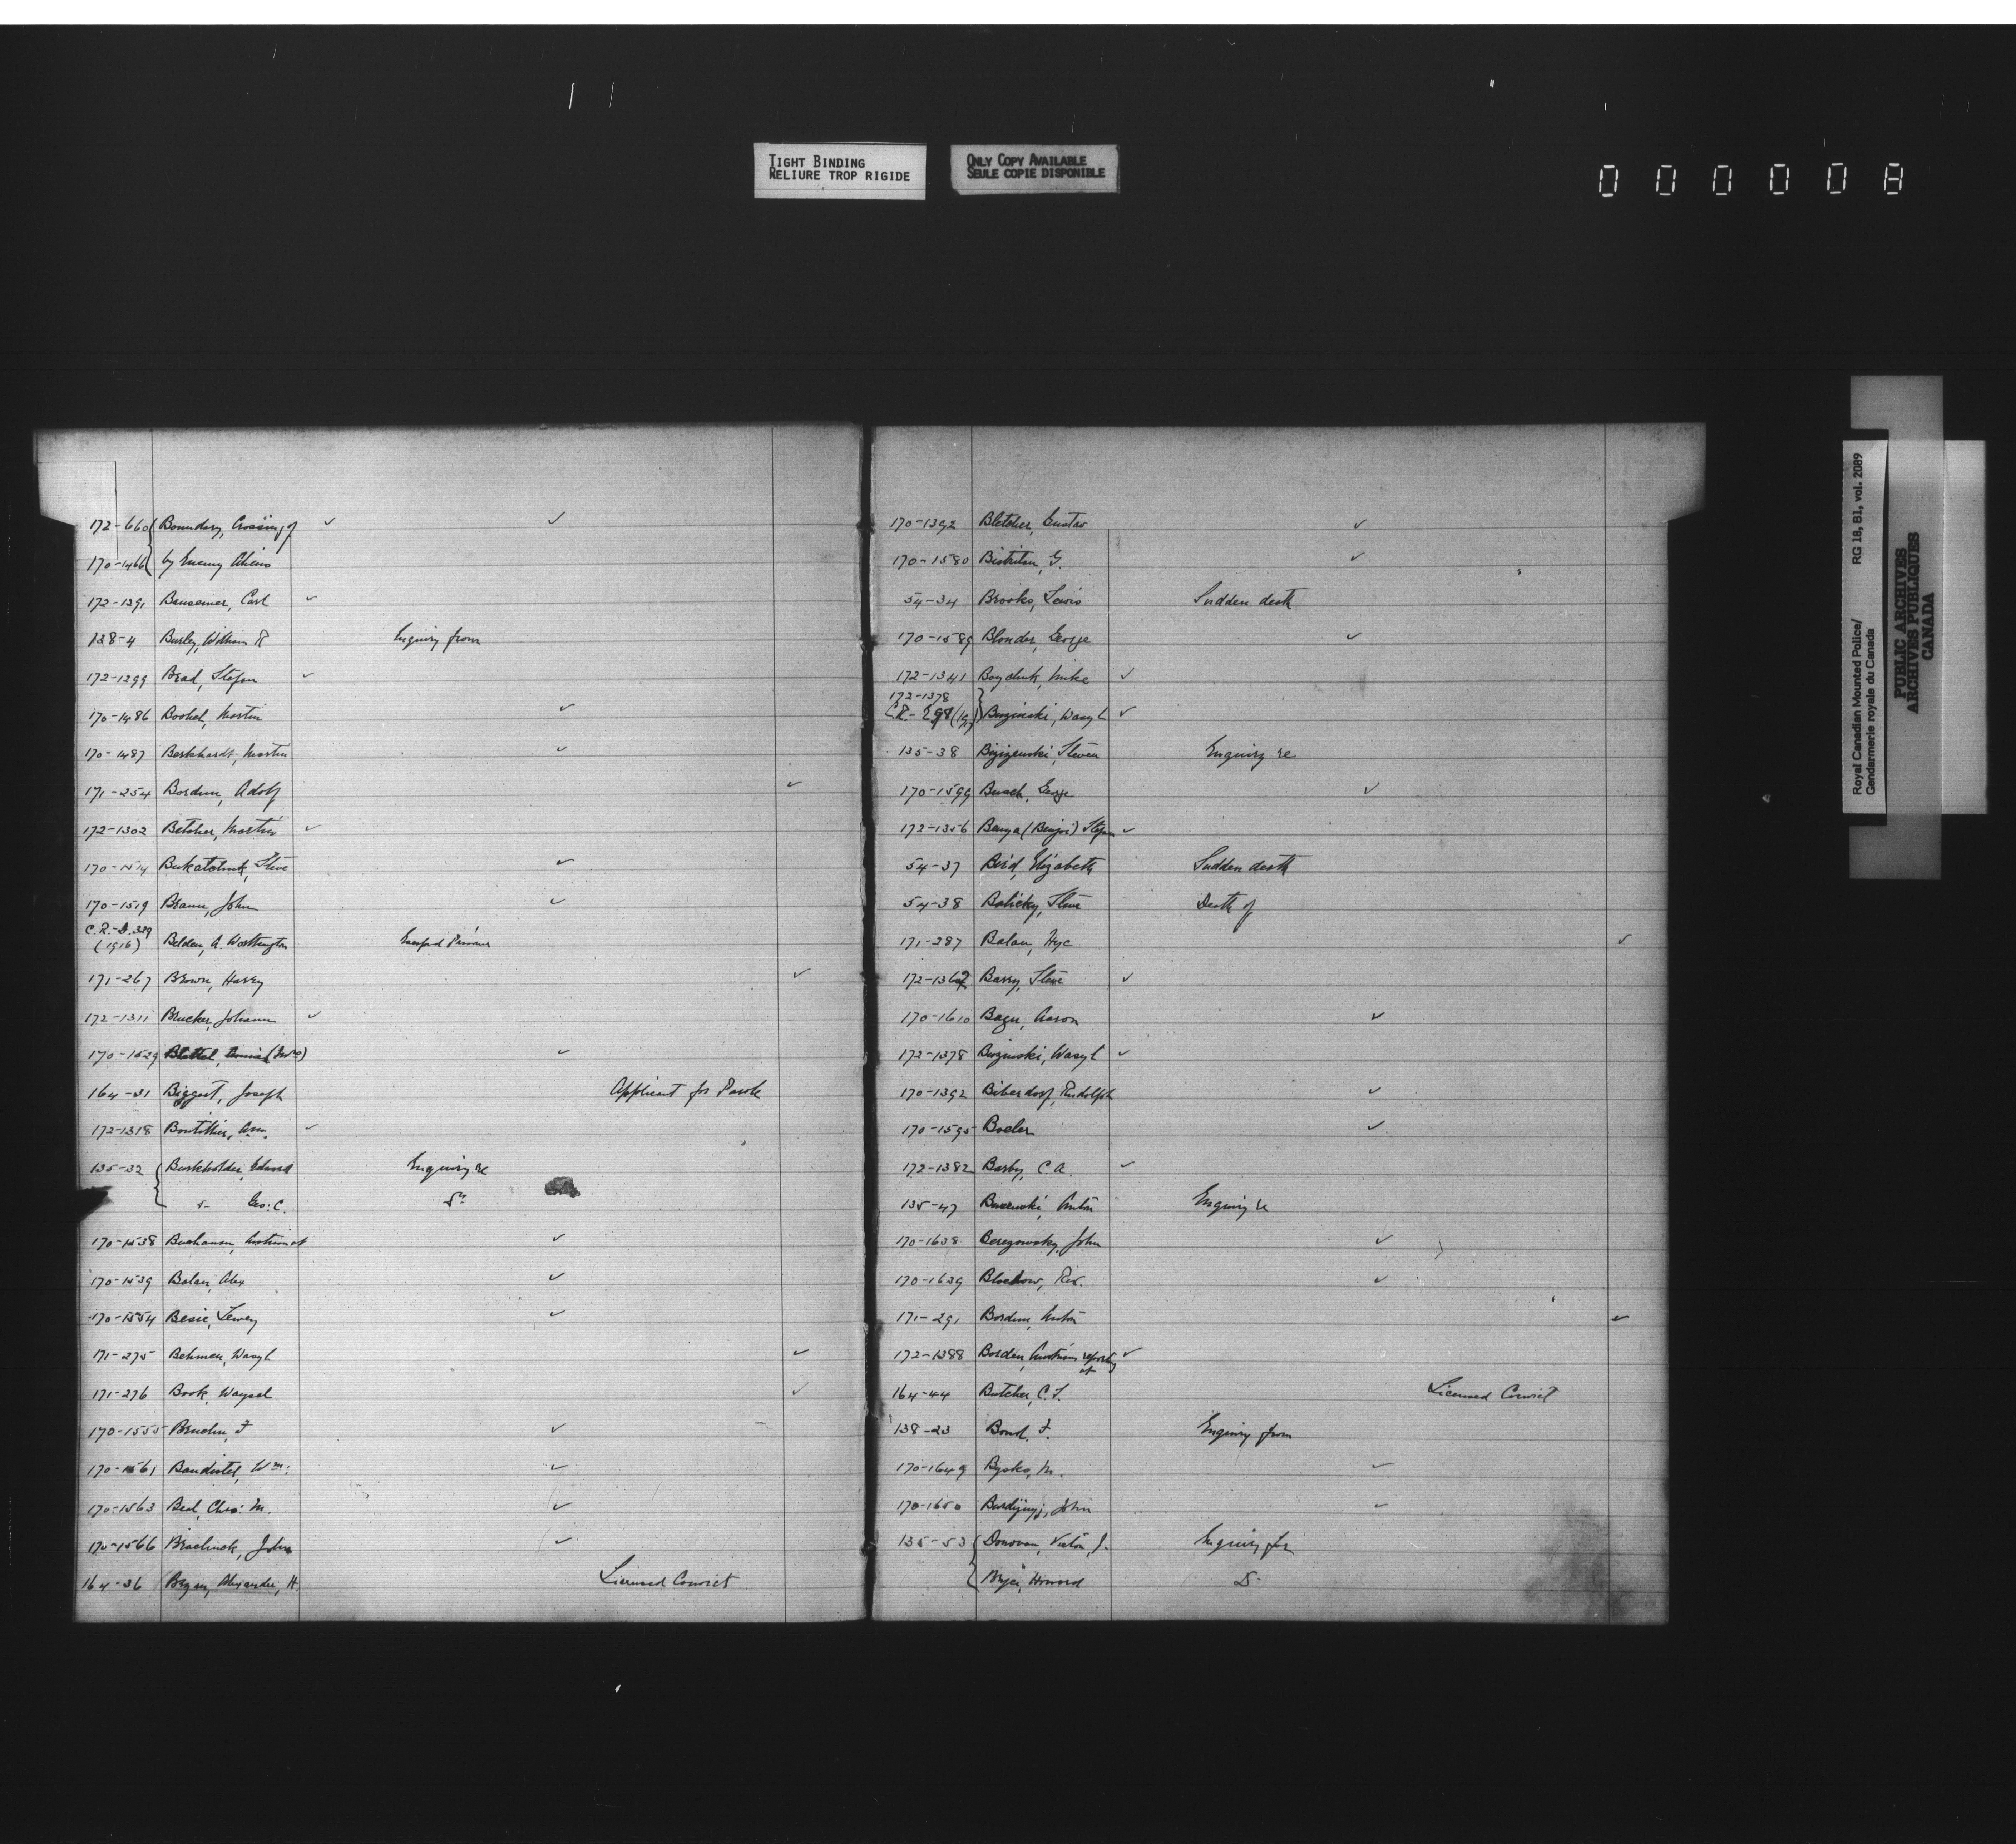 TIGHT BINDING
RELIURE TROP RIGIDE
ONLY COPY AVAILABLE
SEULE COPIE DISPONIBLE
000008
172-660 Boundary, Crossing of ✓ ✓
170-1466 by Enemy Aliens
172-1391 Bausemer, Carl ✓
138-4 Burley, William R Inquiry from
172-1299 Brad, Stefan ✓
170-1486 Martin ✓
170-1487 Berkhardt, Martin ✓
171-254 Bordun, Adolf ✓
172-1302 Betcher, Martin ✓
170-1514 Bukatchuk, Steve ✓
170-1519 Braun, John ✓
C.R.-D.329
(1916) Belden, A. Worthington Escaped Prisoner
171-267 Brown, Harry ✓
172-1311 Brucker, Johann ✓
170-1529 (Mrs) ✓
164-31 Biggart, Joseph Applicant for Parole
172-1318 Boutillier, ✓
135-32 Burkholder, Edward Enquiry re
Geo: C. Do
170-1538 Buchanan, Austrians at ✓
170-1539 Balan, Alex ✓
170-1554 Besie, Lewey ✓
171-275 Behmen, Wasyl ✓
171-276 Book, Waysel ✓
170-1555 F ✓
170-1561 Baudistel, Wm: ✓
170-1563 Beal, Chas: M. ✓
170-1566 John ✓
164-36 Bryan, Alexander, H. Licensed Convict
170-1392 Bletcher, Gustav ✓
170-1580 G. ✓
54-34 Brooks, Lewis Sudden death
170-1589 Blonder, George ✓
172-1341 Boychuk, Mike ✓
172-1378
C.R.- Burzinski, Wasyl ✓
135-38 Steven Enquiry re
170-1599 Busch, George ✓
172-1356 Benya (Benjoi) Stefan ✓
54-37 Bird, Elizabeth Sudden death
54-38 Balicky, Steve Death of
171-287 Balan, Hyc ✓
172-1362 Barry, Steve ✓
170-1610 Aaron ✓
172-1378 Burzinski, Wasyl ✓
170-1392 Biberdorf, Rudolph ✓
170-1595 Boeler ✓
172-1382 Barby, C. A. ✓
135-47 Anton Enquiry re
170-1638 Beregowsky, John ✓
170-1639 Blockow, Rev. ✓
171-291 Bordun, Anton ✓
172-1388 Borden, Austrians reporting at ✓
164-44 Butcher, C. F. Licensed Convict
138-23 Bond, F. Enquiry from
170-1649 Bysko, M. ✓
170-1650 John ✓
135-53 Donovan, Victor, J. Enquiry for
Howard D.
Royal Canadian Mounted Police/ RG 18, B1, vol. 2089
Gendarmerie royale du Canada
PUBLIC ARCHIVES
ARCHIVES PUBLIQUES
CANADA